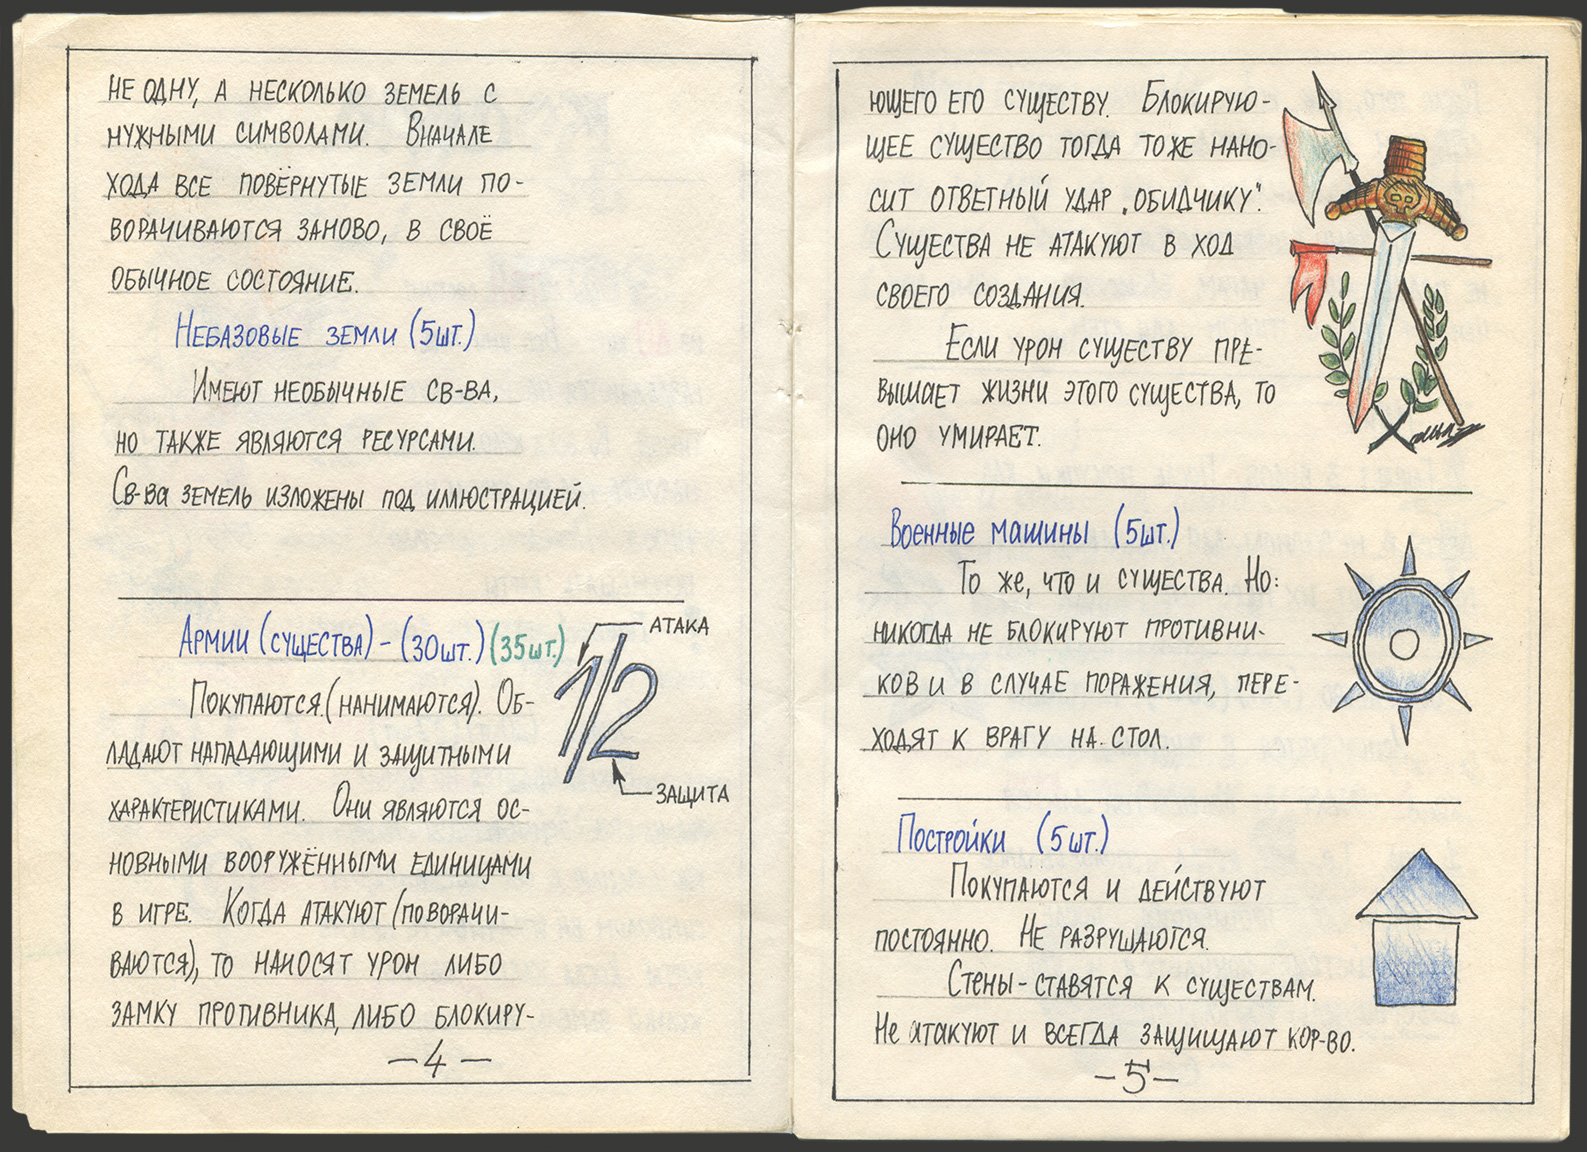 НЕ ОДНУ, А НЕСКОЛЬКО ЗЕМЕЛЬ С
НУЖНЫМИ СИМВОЛАМИ. ВНАЧАЛЕ
ХОДА ВСЕ ПОВЁРНУТЫЕ ЗЕМЛИ ПО-
ВОРАЧИВАЮТСЯ ЗАНОВО, В СВОЁ
ОБЫЧНОЕ СОСТОЯНИЕ.
НЕБАЗОВЫЕ ЗЕМЛИ (5ШТ.)
ИМЕЮТ НЕОБЫЧНЫЕ СВ-ВА,
НО ТАКЖЕ ЯВЛЯЮТСЯ РЕСУРСАМИ.
СВ-ВА ЗЕМЕЛЬ ИЗЛОЖЕНЫ ПОД ИЛЛЮСТРАЦИЕЙ.
АРМИИ (СУЩЕСТВА) - (30ШТ.) (35ШТ.)
АТАКА
1/2
ЗАЩИТА
ПОКУПАЮТСЯ.(НАНИМАЮТСЯ). ОБ-
ЛАДАЮТ НАПАДАЮЩИМИ И ЗАЩИТНЫМИ
ХАРАКТЕРИСТИКАМИ. ОНИ ЯВЛЯЮТСЯ ОС-
НОВНЫМИ ВООРУЖЁННЫМИ ЕДИНИЦАМИ
В ИГРЕ. КОГДА АТАКУЮТ (ПОВОРАЧИ-
ВАЮТСЯ), ТО НАНОСЯТ УРОН ЛИБО
ЗАМКУ ПРОТИВНИКА, ЛИБО БЛОКИРУ-
- 4 -
ЮЩЕГО ЕГО СУЩЕСТВУ. БЛОКИРУЮ-
ЩЕЕ СУЩЕСТВО ТОГДА ТОЖЕ НАНО-
СИТ ОТВЕТНЫЙ УДАР „ОБИДЧИКУ".
СУЩЕСТВА НЕ АТАКУЮТ В ХОД
СВОЕГО СОЗДАНИЯ.
ЕСЛИ УРОН СУЩЕСТВУ ПРЕ-
ВЫШАЕТ ЖИЗНИ ЭТОГО СУЩЕСТВА, ТО
ОНО УМИРАЕТ.
ВОЕННЫЕ МАШИНЫ (5ШТ.)
ТО ЖЕ, ЧТО И СУЩЕСТВА. НО:
НИКОГДА НЕ БЛОКИРУЮТ ПРОТИВНИ-
КОВ И В СЛУЧАЕ ПОРАЖЕНИЯ, ПЕРЕ-
ХОДЯТ К ВРАГУ НА СТОЛ.
ПОСТРОЙКИ (5ШТ.)
ПОКУПАЮТСЯ И ДЕЙСТВУЮТ
ПОСТОЯННО. НЕ РАЗРУШАЮТСЯ.
СТЕНЫ - СТАВЯТСЯ К СУЩЕСТВАМ.
НЕ АТАКУЮТ И ВСЕГДА ЗАЩИЩАЮТ КОР-ВО.
- 5 -